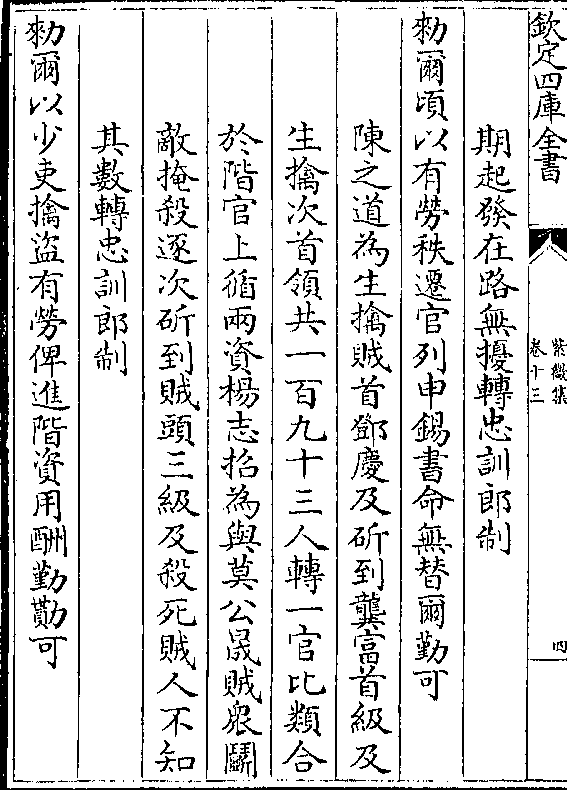 欽定四庫全書
紫微集
卷十三
四
期起發在路無擾轉忠訓郎制
勑爾頃以有勞秩遷官列申錫書命無替爾勤可
陳之道為生擒賊首鄧慶及斫到龔富首級及
生擒次首領共一百九十三人轉一官比類合
於階官上循兩資楊志招為與莫公晟賊衆鬭
敵掩殺逐次斫到賊頭三級及殺死賊人不知
其數轉忠訓郎制
勑爾以少吏擒盜有勞俾進階資用酬勤勩可